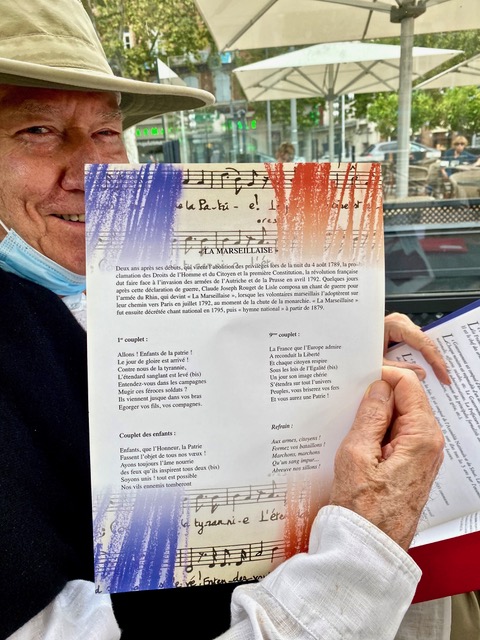 « LA MARSEILLAISE »
Deux ans après ses débuts, qui virent l'abolition des privilèges lors de la nuit du 4 août 1789, la pro-
clamation des Droits de l'Homme et du Citoyen et la première Constitution, la révolution française
dut faire face à l'invasion des armées de l'Autriche et de la Prusse en avril 1792. Quelques jours
après cette déclaration de guerre, Claude Joseph Rouget de Lisle composa un chant de guerre pour
l'armée du Rhin, qui devint « La Marseillaise », lorsque les volontaires marseillais l'adoptèrent sur
leur chemin vers Paris en juillet 1792, au moment de la chute de la monarchie. « La Marseillaise »
fut ensuite décrétée chant national en 1795, puis « hymne national » à partir de 1879.
1er couplet :
Allons ! Enfants de la patrie !
Le jour de gloire est arrivé !
Contre nous de la tyrannie,
L'étendard sanglant est levé (bis)
Entendez-vous dans les campagnes
Mugir ces féroces soldats ?
Ils viennent jusque dans vos bras
Egorger vos fils, vos compagnes.
Couplet des enfants :
Enfants, que l'Honneur, la Patrie
Fassent l'objet de tous nos vœux !
Ayons toujours l'âme nourrie
des feux qu'ils inspirent tous deux (bis)
Soyons unis ! tout est possible
Nos vils ennemis tomberont
9ème couplet :
La France que l'Europe admire
A reconduit la Liberté
Et chaque citoyen respire
Sous les lois de l'Egalité (bis)
Un jour son image chérie
S'étendra sur tout l'univers.
Peuples, vous briserez vos fers
Et vous aurez une Patrie !
Refrain :
Aux armes, citoyens !
Formez vos bataillons !
Marchons, marchons
Qu'un sang impur...
Abreuve nos sillons !
la tyranni-e L'éte